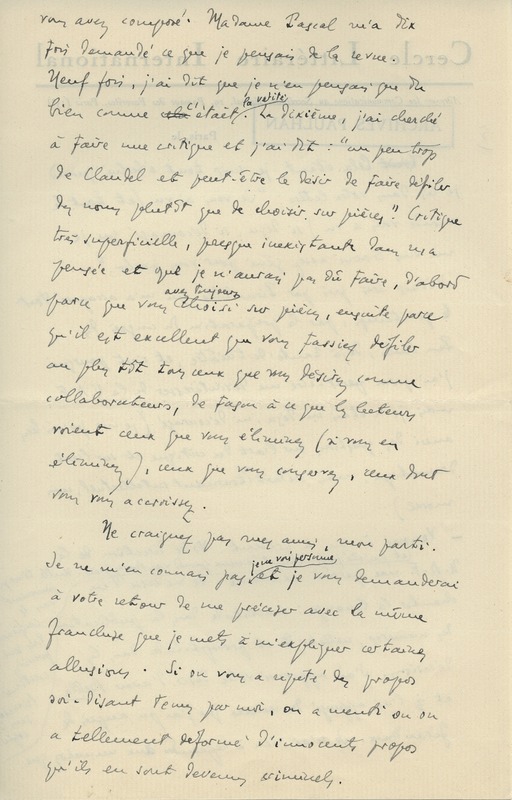 vous avez composé. Madame Pascal m'a dix
fois demandé ce que je pensais de la revue.
Neuf fois, j'ai dit que je n'en pensais que du
bien comme c'était la vérité. La dixième, j'ai cherché
à faire une critique et j'ai dit : "un peu trop
de Claudel et peut-être le désir de faire défiler
des noms plutôt que de choisir sur pièces". Critique
très superficielle, presque inexistante dans ma
pensée et que je n'aurais pas dû faire, d'abord
parce que vous avez toujours choisi sur pièces, ensuite parce
qu'il est excellent que vous fassiez défiler
au plus tôt tous ceux que vous désirez comme
collaborateurs, de façon à ce que les lecteurs
voient ceux que vous éliminez (si vous en
éliminez), ceux que vous conservez, ceux dont
vous vous accroissez.
Ne craignez pas mes amis, mon parti.
Je ne m'en connais pas, je ne vois personne et je vous demanderai
à votre retour de me préciser avec la même
franchise que je mets à m'expliquer certaines
allusions. Si on vous a répété des propos
soi-disant tenus par moi, on a menti ou on
a tellement déformé d'innocents propos
qu'ils en sont devenus criminels.
Cercle Littéraire International
ARCHIVES PAULHAN